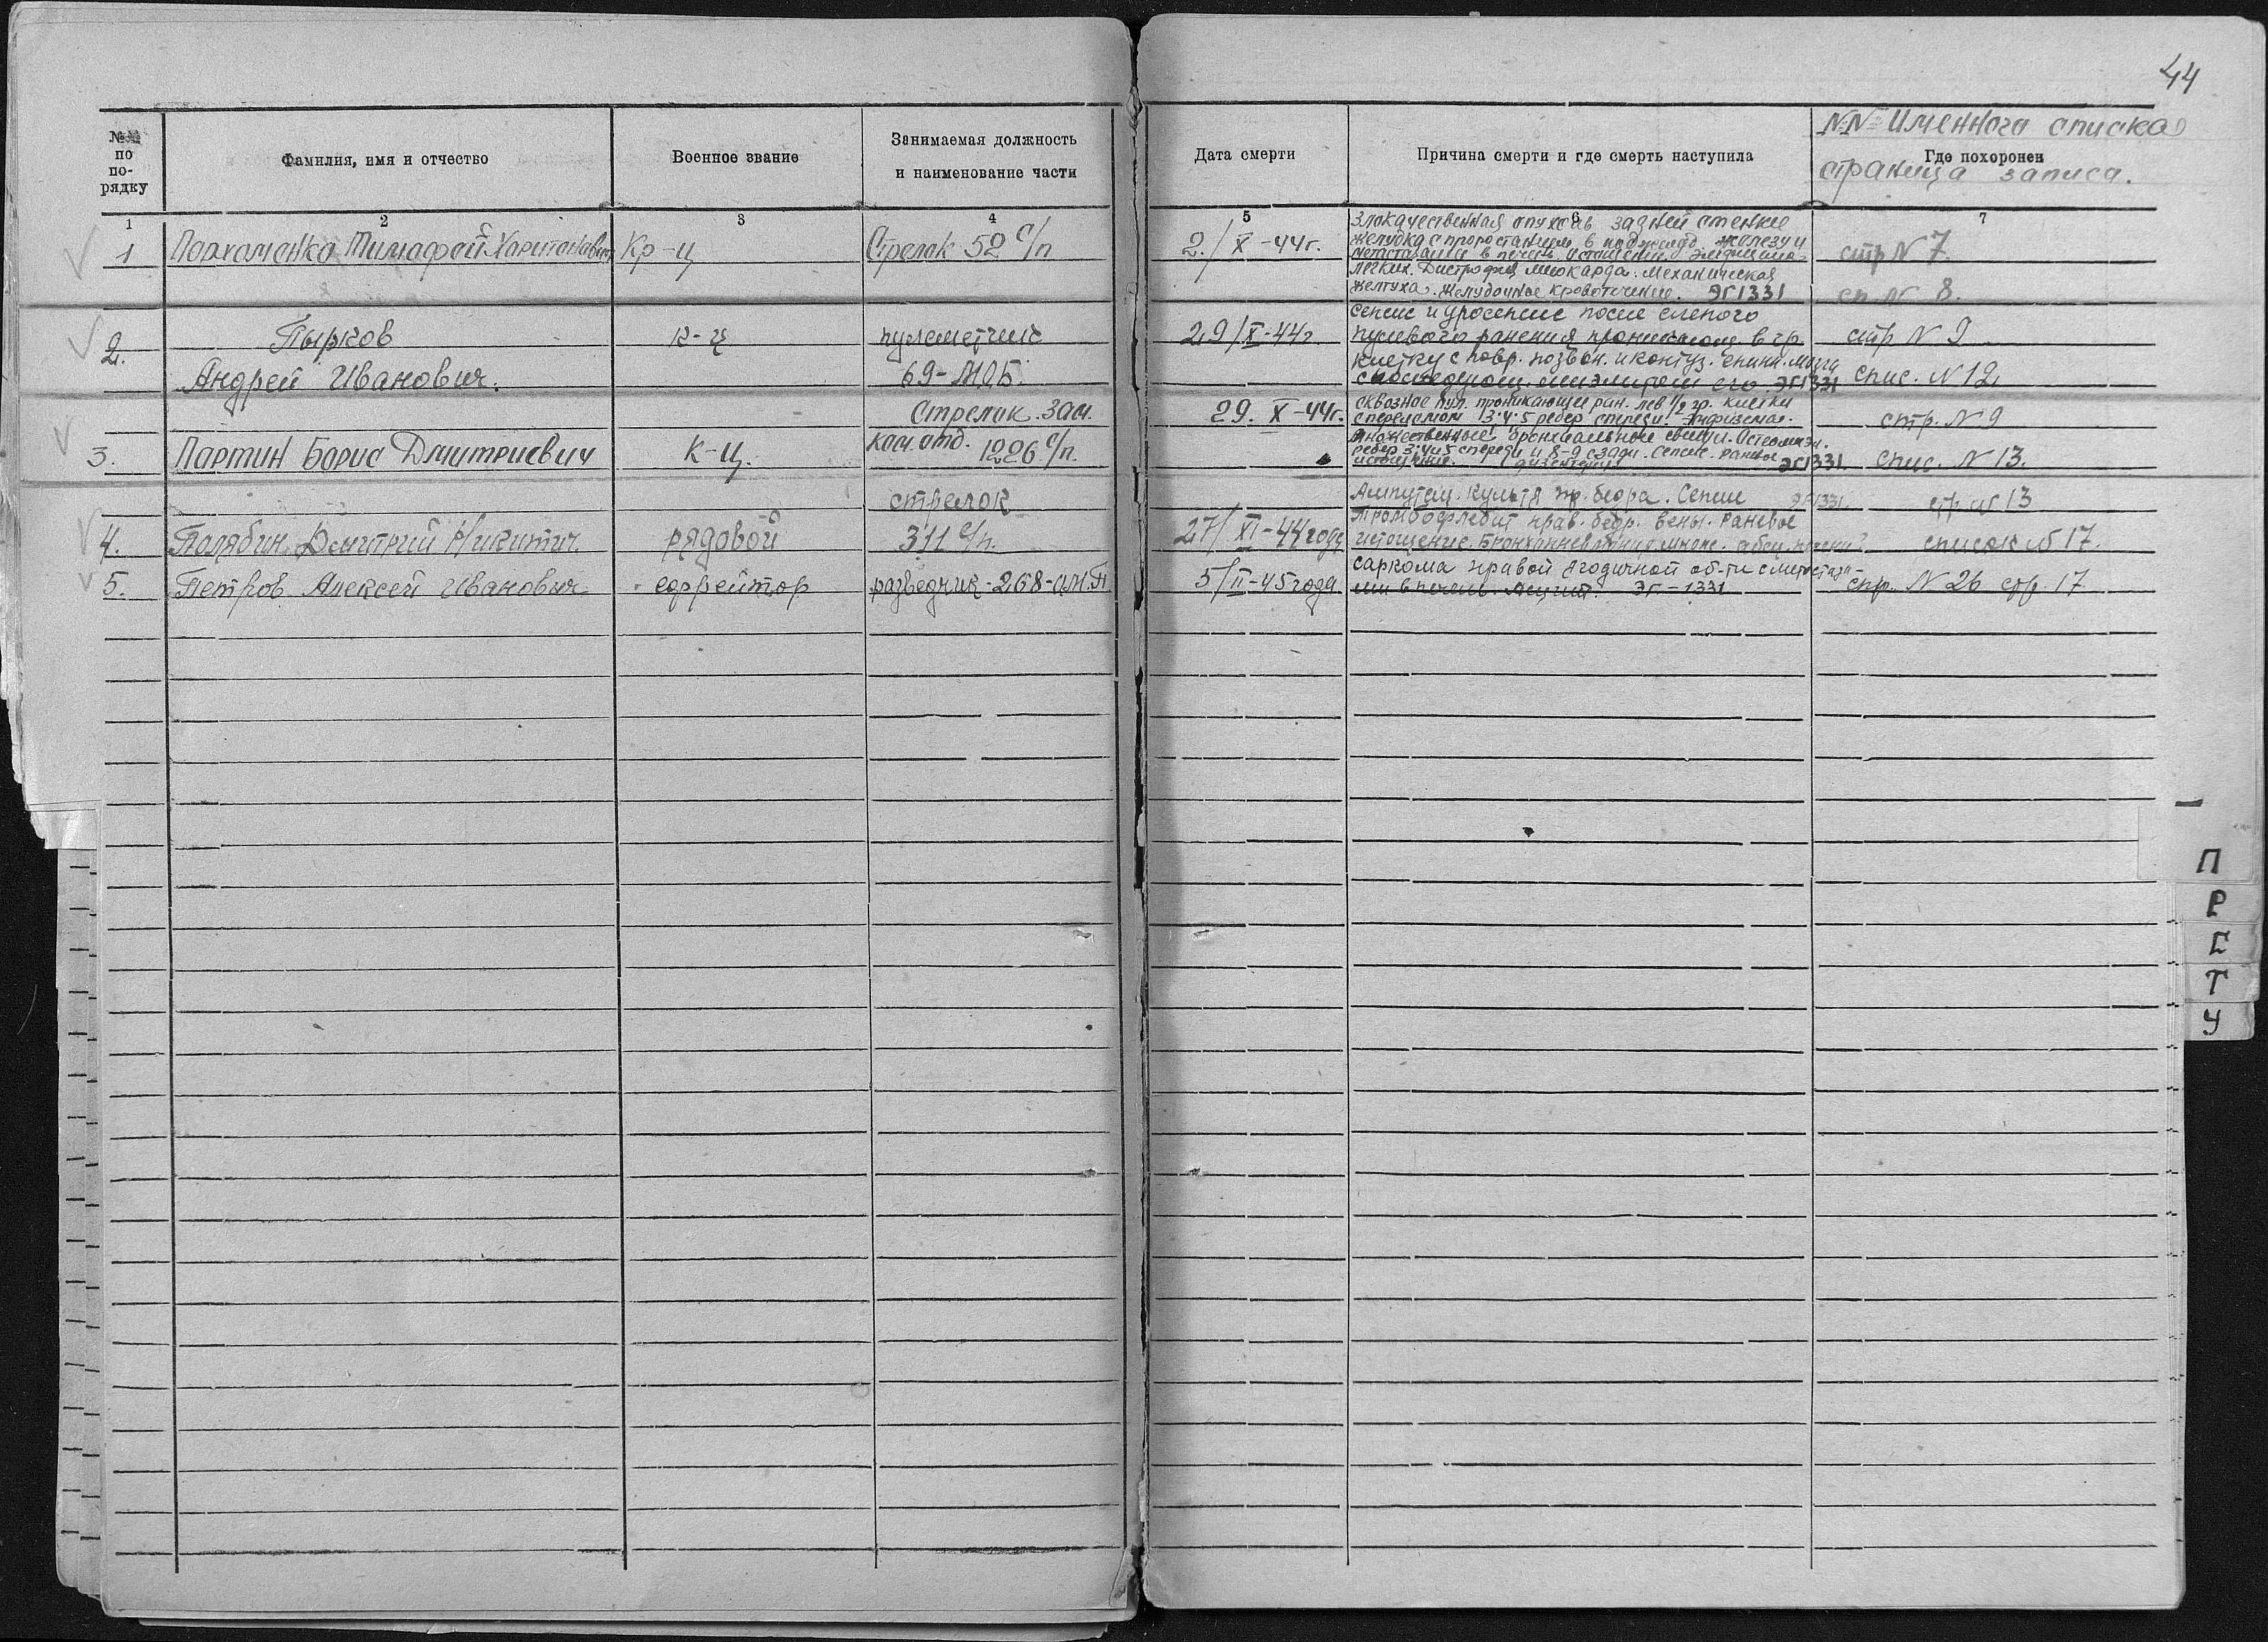 44
№№ по по-рядку
Фамилия, имя и отчество
Военное звание
Занимаемая должность и наименование части
Дата смерти
Причина смерти и где смерть наступила
№№ Именного списка
Где похоронен
страница записа.
1 2 3 4 5 6 7
1 Пархоменко Тимофей Харитонович Кр-ц Стрелок 52 с/п 2/X-44г.
Злокачественная опухоль задней стенке
желудка с проростанием в поджелуд. железу и
метастазами в печень. Истощение.
легких. Дистрофия миокарда. Механическая
желтуха. Желудочное кровотечение. ЭГ1331
стр N 7.
сп. N 8.
2. Пырков
Андрей Иванович.
к-ц
пулеметчик
69-МОБ.
29/X-44г.
Сепсис и уросепсис после слепого
пулевого ранения проникающ. в гр.
клетку с повр. позвон. и контуз. спинн. мозга
с последующ. его ЭГ1331
стр N 9
спис. N 12.
3. Партин Борис Дмитриевич
К-ц.
Стрелок. зам.
ком. отд. 1226 с/п.
29. X-44г.
Сквозное пул. проникающее ран. лев 1/2 гр. клетки
с переломом 3.4.5 ребер спереди. Эмфизема.
Множественные бронхиальные свищи. Остеомиэл.
ребер 3,4 и 5 спереди и 8-9 сзади. Сепсис. Раневое
истощение. ЭГ1331
стр. N 9
спис. N 13.
4. Полябин Дмитрий Никитич.
рядовой
стрелок
311 с/п.
27/XI-44 года
Ампутац. культя пр. бедра. Сепсис ЭГ1331.
Тромбофлебит прав. бедр. вены. Раневое
истощение.
стр. N 13
список N 17.
5. Петров Алексей Иванович
ефрейтор
разведчик-268-
5/II-45 года
Саркома правой ягодичной об-ти с метостаза-
ми в печень. Асцит. ЭГ-1331
стр. N 26 стр. 17
П
Р
С
Т
У